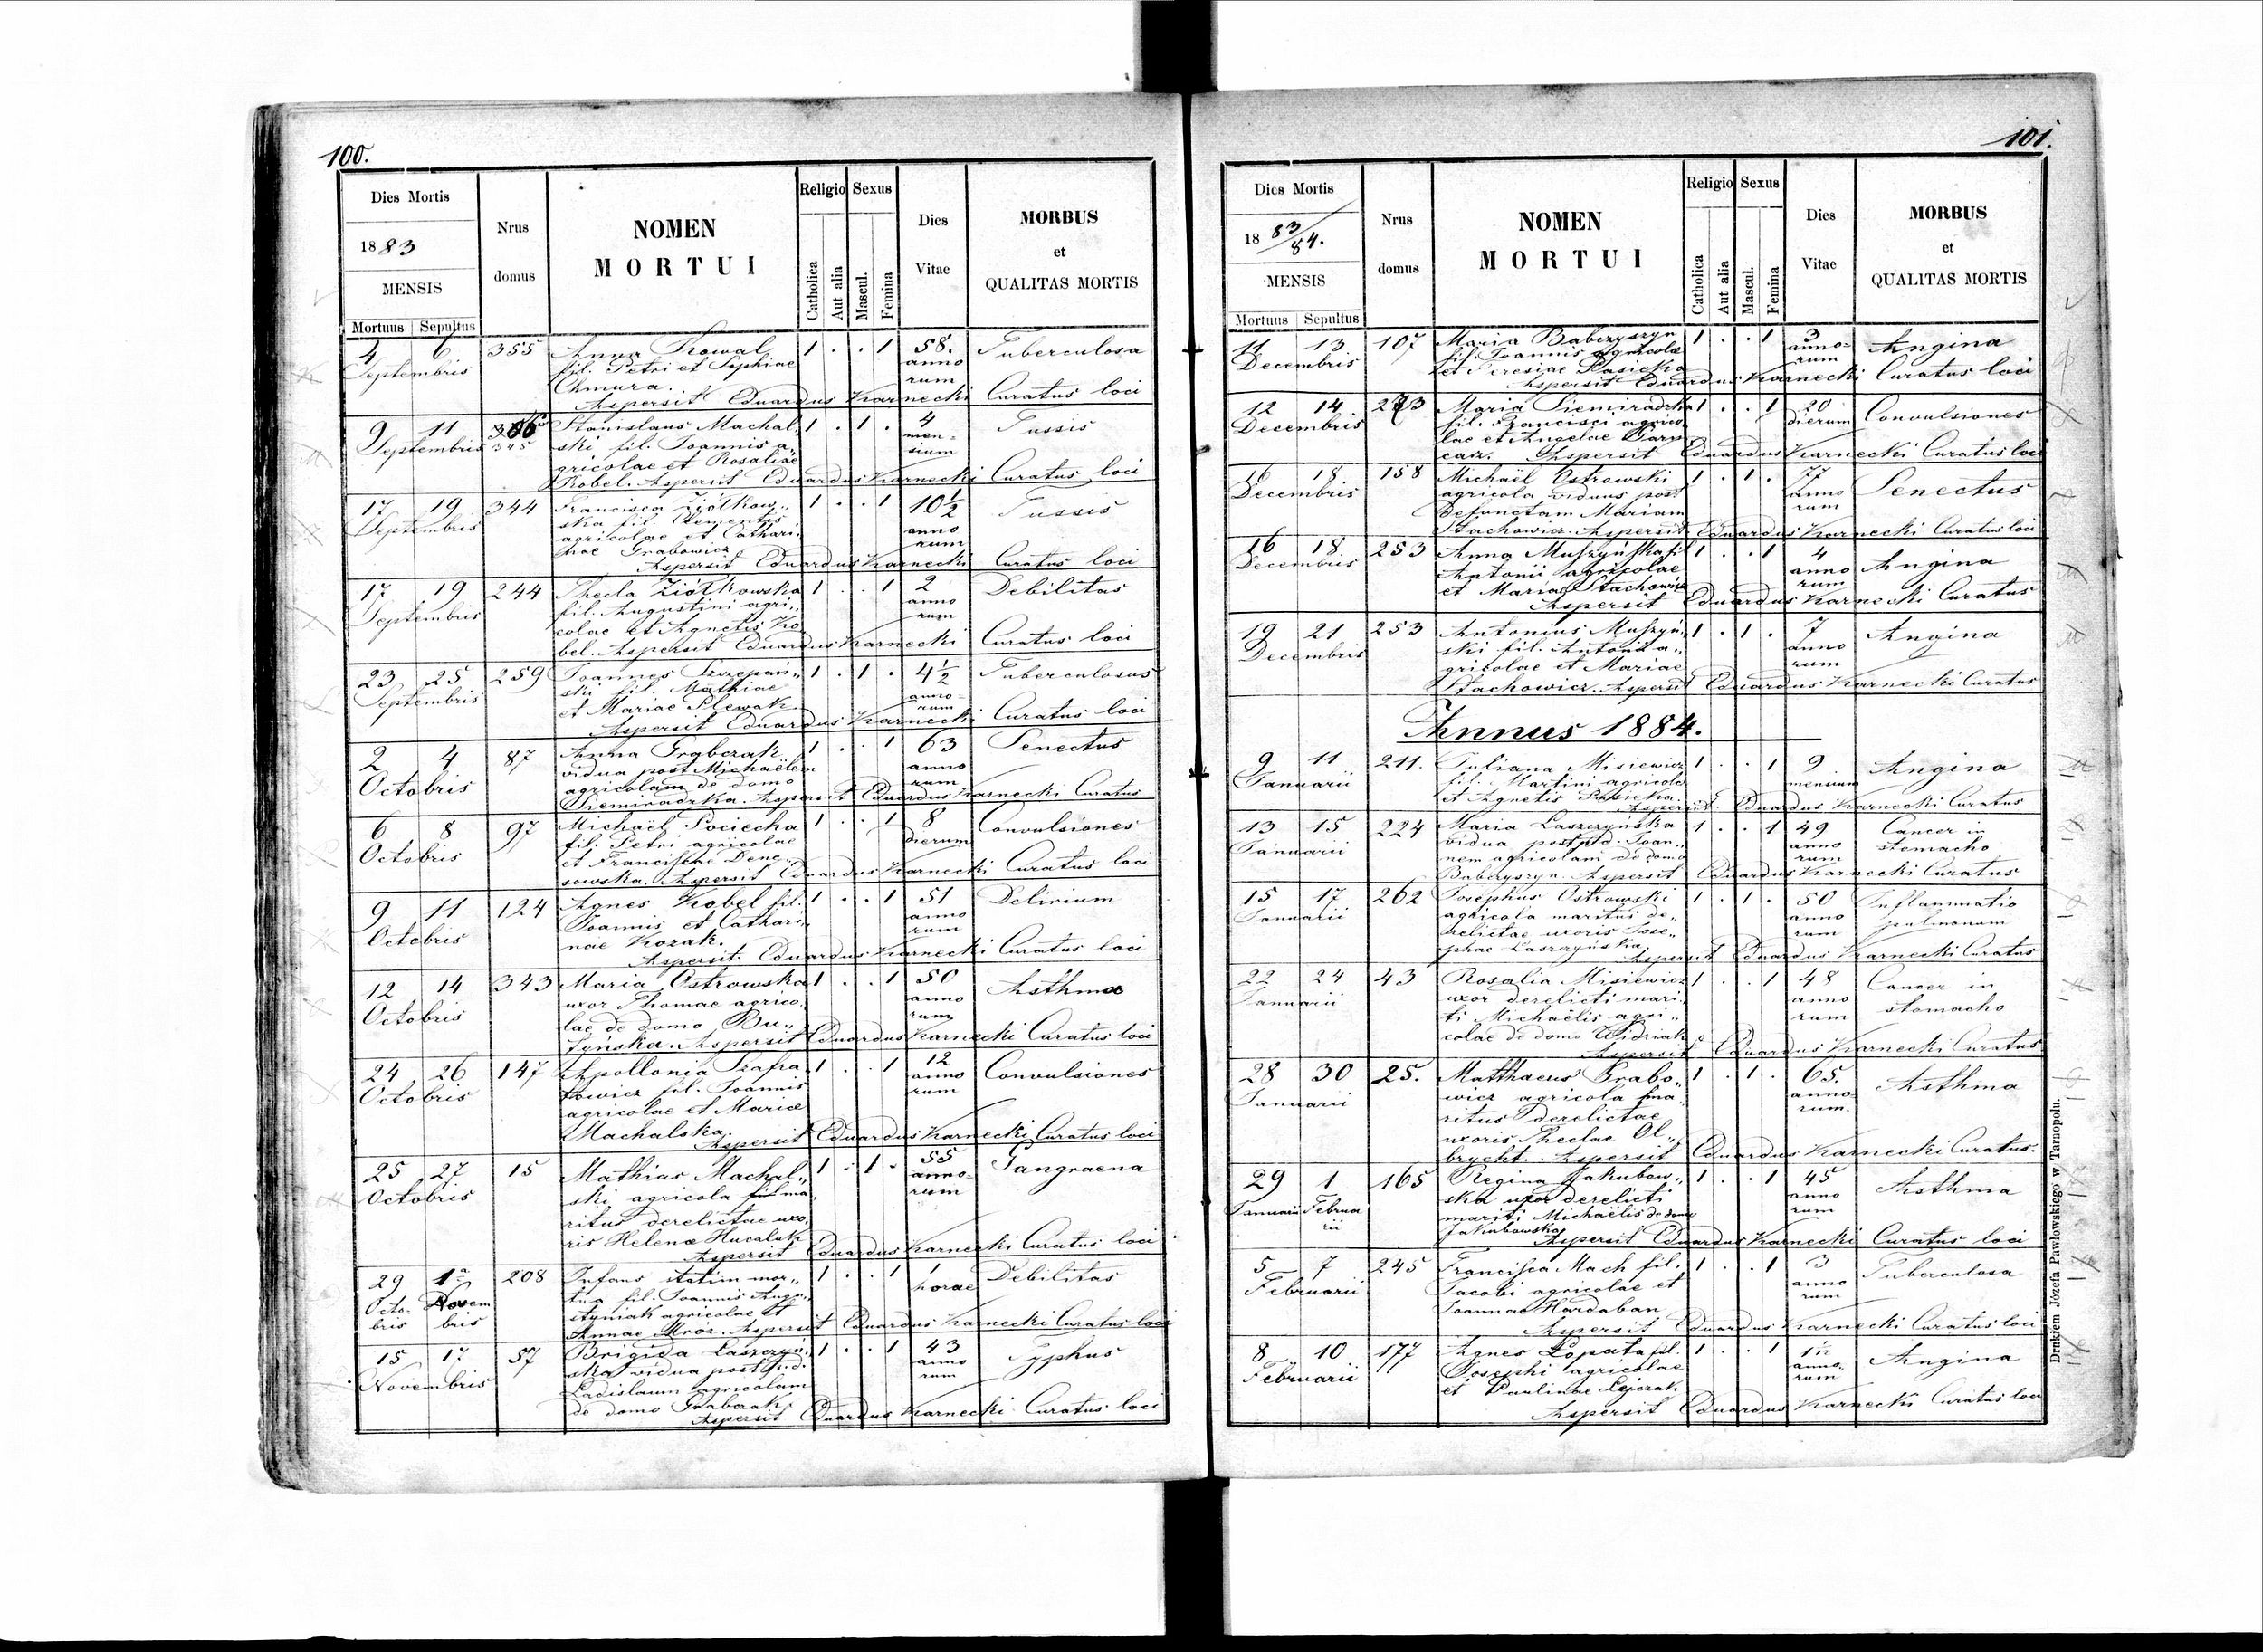 100.
Dies Mortis
1883
MENSIS
Mortuus | Sepultus
Nrus domus
NOMEN
MORTUI
Religio
Catholica
Aut alia
Sexus
Mascul.
Femina
Dies
Vitae
MORBUS
et
QUALITAS MORTIS
4 6 355 Anna Kowal 1 . . 1 58. Tuberculosa
Septembris fil. Petri et Sophiae anno
Chmura. rum
Aspersit Eduardus Karnecki Curatus loci
9 11 Stanislaus Machal, 1 . 1 . 4 Tussis
Septembris 345 ski fil. Joannis a, men=
gricolae et Rosaliae sium
Kobel. Aspersit Eduardus Karnecki Curatus loci
17 19 344 Francisca Ziółkow,, 1 . . 1 10½ Tussis
Septembris ska fil. Clementis anno
agricolae et Cathari, rum
nae Grabowicz
Aspersit Eduardus Karnecki Curatus loci
17 19 244 Thecla Ziółkowska 1 . . 1 2 Debilitas
Septembris fil. Augustini agri,, anno
colae et Agnetis Ko rum
bel. Aspersit Eduardus Karnecki Curatus loci
23 25 259 Joannes Szczepań,, 1 . 1 . 4½ Tuberculosus
Septembris ski fil. Mathiae anno=
et Mariae Plewak rum
Aspersit Eduardus Karnecki Curatus loci
2 4 87 Anna Grabczak 1 . . 1 63 Senectus
Octobris vidua post Michaëlem anno
agricolam de domo rum
Siemiradzka. Aspersit Eduardus Karnecki Curatus
6 8 97 Michaël Pociecha 1 . . 1 8 Convulsiones
Octobris fil. Petri agricolae dierum
et Franciscae Dene,,
sowska. Aspersit Eduardus Karnecki Curatus loci
9 11 124 Agnes Kobel fil. 1 . . 1 51 Delirium
Octobris Joannis et Cathari, anno
nae Kozak. rum
Aspersit Eduardus Karnecki Curatus loci
12 14 343 Maria Ostrowska 1 . . 1 50 Asthma
Octobris uxor Thomae agrico, anno
lae de domo Bu,, rum
Aspersit Eduardus Karnecki Curatus loci
24 26 147 Apollonia Szafra 1 . . 1 12 Convulsiones
Octobris nowicz fil. Joannis anno
agricolae et Mariae rum
Machalska.
Aspersit Eduardus Karnecki Curatus loci
25 27 15 Mathias Machal,, 1 . 1 . 55 Gangraena
Octobris ski agricola ma, anno=
ritus derelictae uxo, rum
ris Helenae Hucaluk
Aspersit Eduardus Karnecki Curatus loci
29 1ª 208 Infans statim mor,, 1 . . 1 1 Debilitas
Octo- Novem tua fil. Joannis Augu, horae
bris bris styniak agricolae et
Annae Mróz. Aspersit Eduardus Karnecki Curatus loci
15 17 57 Brigida Łaszczyń, 1 . . 1 43 Typhus
Novembris ska vidua post anno
Ladislaum agricolam rum
de domo Grabczak
Aspersit Eduardus Karnecki Curatus loci
101.
Dies Mortis
18 83/84.
MENSIS
Mortuus | Sepultus
Nrus domus
NOMEN
MORTUI
Religio
Catholica
Aut alia
Sexus
Mascul.
Femina
Dies
Vitae
MORBUS
et
QUALITAS MORTIS
11 13 107 Maria Babczyszyn 1 . . 1 3 Angina
Decembris fil. Joannis agricolae anno=
et Teresiae Pasieka rum
Aspersit Eduardus Karnecki Curatus loci
12 14 273 Maria Siemiradzka 1 . . 1 20 Convulsiones
Decembris fil. Francisci agrico, dierum
lae et Angelae
Aspersit Eduardus Karnecki Curatus loci
16 18 158 Michaël Ostrowski 1 . 1 . 77 Senectus
Decembris agricola viduus post anno
defunctam Mariam rum
Stachowicz. Aspersit Eduardus Karnecki Curatus loci
16 18. 253 Anna Muszyńska fil 1 . . 1 4 Angina
Decembris Antonii agricolae anno
et Mariae Stachowicz rum
Aspersit Eduardus Karnecki Curatus
19 21 253 Antonius Muszyń, 1 . 1 . 7 Angina
Decembris ski fil. Antonii a,, anno
gricolae et Mariae rum
Stachowicz. Aspersit Eduardus Karnecki Curatus
Annus 1884.
9 11 211. Juliana Misiewicz 1 . . 1 9 Angina
Januarii fil. Martini agricolae mensium
et Agnetis Pasieka.
Aspersit Eduardus Karnecki Curatus
13 15 224 Maria Łaszczyńska 1 . . 1 49 Cancer in
Januarii vidua post Joan, anno stomacho
nem agricolam de domo rum
Babczyszyn. Aspersit Eduardus Karnecki Curatus
15 17 262 Josephus Ostrowski 1 . 1 . 50 Inflammatio
Januarii agricola maritus de,, anno pulmonum
relictae uxoris Jose,, rum
phae Łaszczyńska.
Aspersit Eduardus Karnecki Curatus
22 24 43 Rosalia Misiewicz 1 . . 1 48 Cancer in
Januarii uxor derelicti mari, anno stomacho
ti Michaëlis agri,, rum
colae de domo
Aspersit Eduardus Karnecki Curatus
28 30 25. Matthaeus Grabo,, 1 . 1 . 65. Asthma
Januarii wicz agricola ma, anno=
ritus derelictae rum.
uxoris Theclae Ol,,
brycht. Aspersit Eduardus Karnecki Curatus.
29 1 165 Regina Jakubow,, 1 . . 1 45 Asthma
Januarii Februa ska uxor derelicti anno
rii mariti Michaëlis de domo rum
Jakubowska
Aspersit Eduardus Karnecki Curatus loci
5 7 245 Francisca Mach fil. 1 . . 1 3 Tuberculosa
Februarii Jacobi agricolae et anno
Joannae Hardaban rum
Aspersit Eduardus Karnecki Curatus loci
8 10 177 Agnes Łopata fil. 1 . . 1 1½ Angina
Februarii Josephi agricolae anno,,
et Paulinae Lejczak rum
Aspersit Eduardus Karnecki Curatus loci
Drukiem Józefa Pawłowskiego w Tarnopolu.